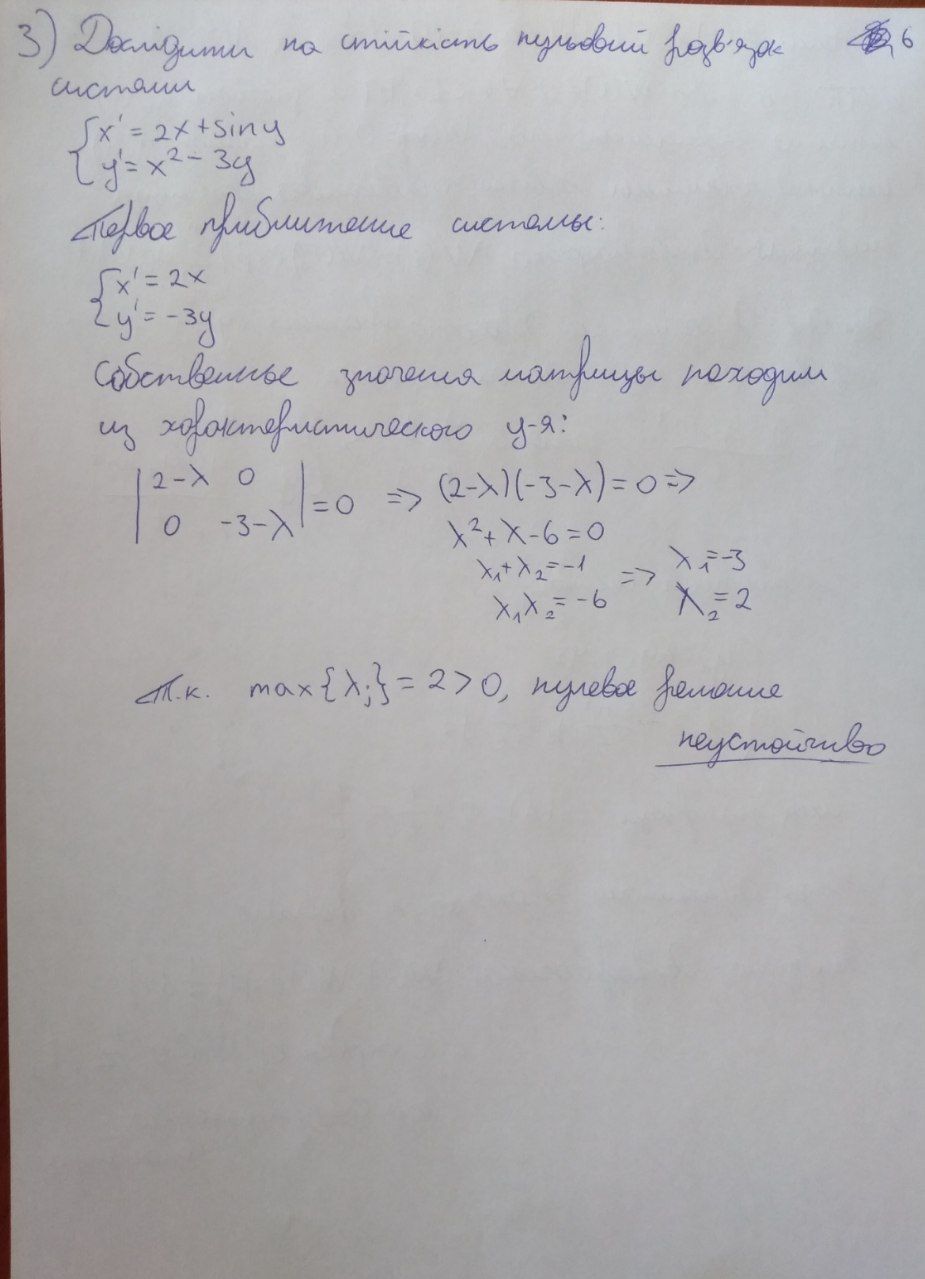 3) Дослідити на стійкість нульовий розв'язок 6
системи
{ x' = 2x + sin y
{ y' = x² - 3y
Первое приближение системы:
{ x' = 2x
{ y' = -3y
Собственные значения матрицы находим
из характеристического у-я:
| 2-λ 0 |
| 0 -3-λ | = 0 => (2-λ)(-3-λ) = 0 =>
λ² + λ - 6 = 0
λ₁ + λ₂ = -1
λ₁λ₂ = -6 => λ₁ = -3
λ₂ = 2
Т.к. max{λⱼ} = 2 > 0, нулевое решение
неустойчиво